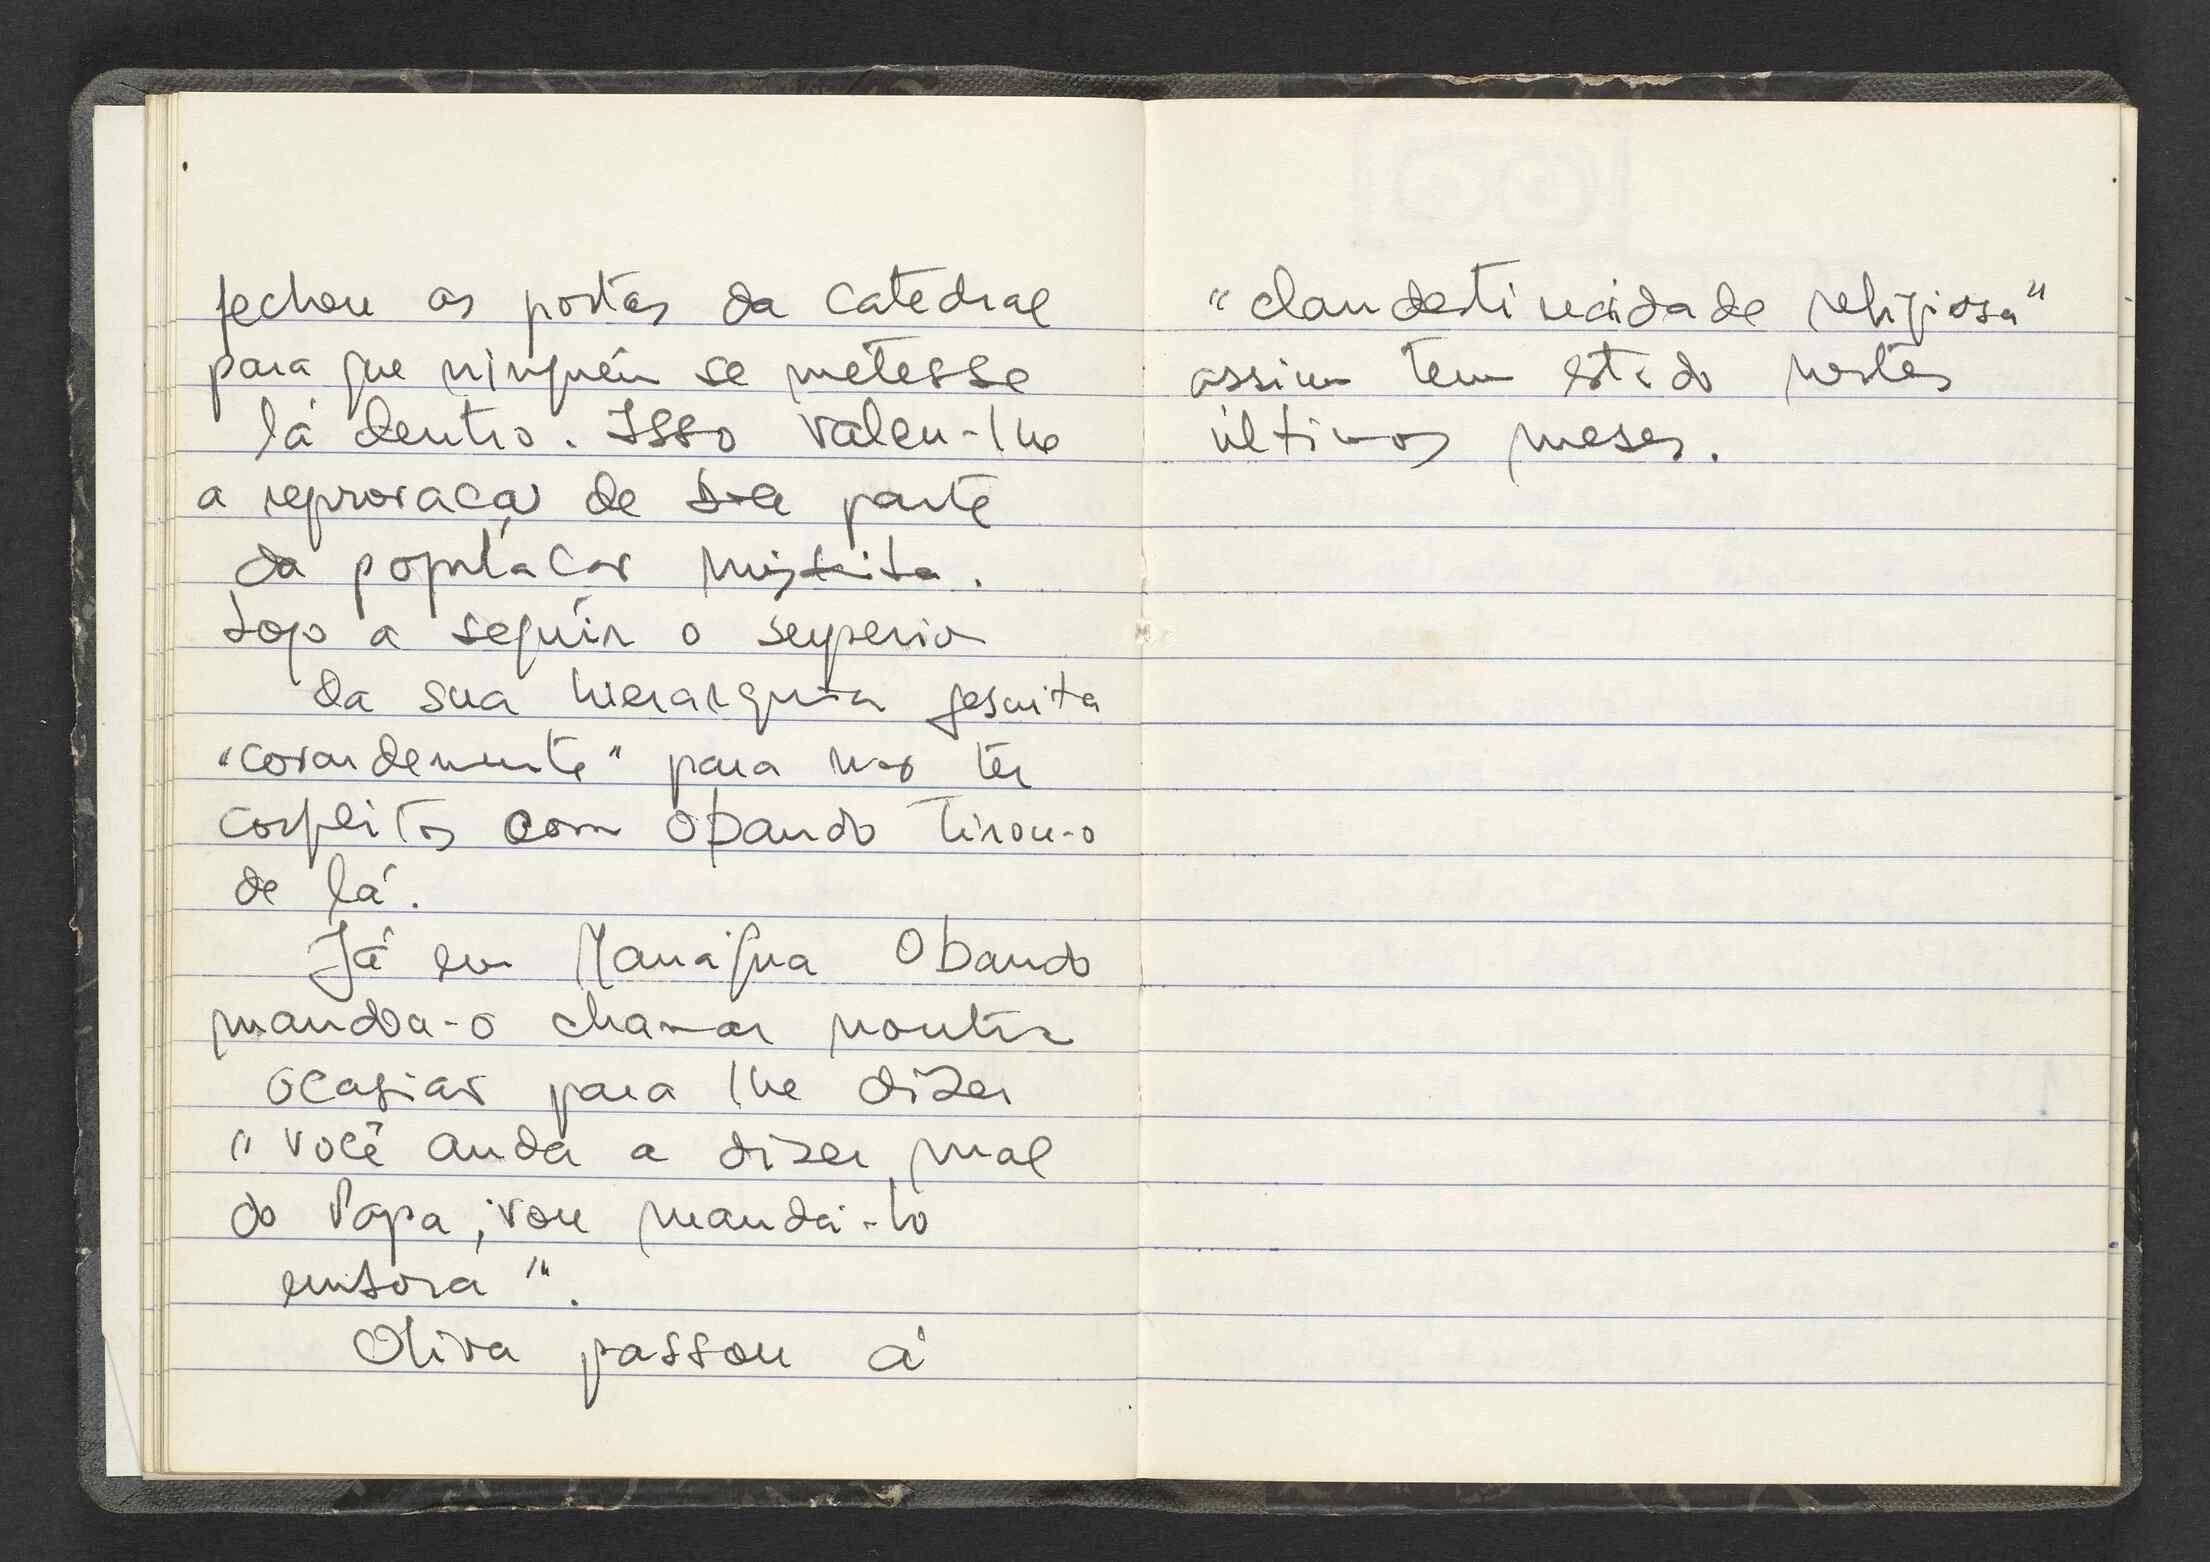 fechou as portas da catedral
para que ninguém se metesse
lá dentro. Isso valeu-lhe
a reprovaçaõ de boa parte
da populaçaõ
Logo a seguir o superior
da sua hierarquia jesuita
"covardemente" para naõ ter
conflitos com Obando tirou-o
de lá.
Já em Manágua Obando
manda-o chamar noutra
ocasiaõ para lhe dizer
"você anda a dizer mal
do Papa, vou mandá-lo
embora".
Oliva passou á
"clandestinidade religiosa"
assim tem estado nestes
últimos meses.